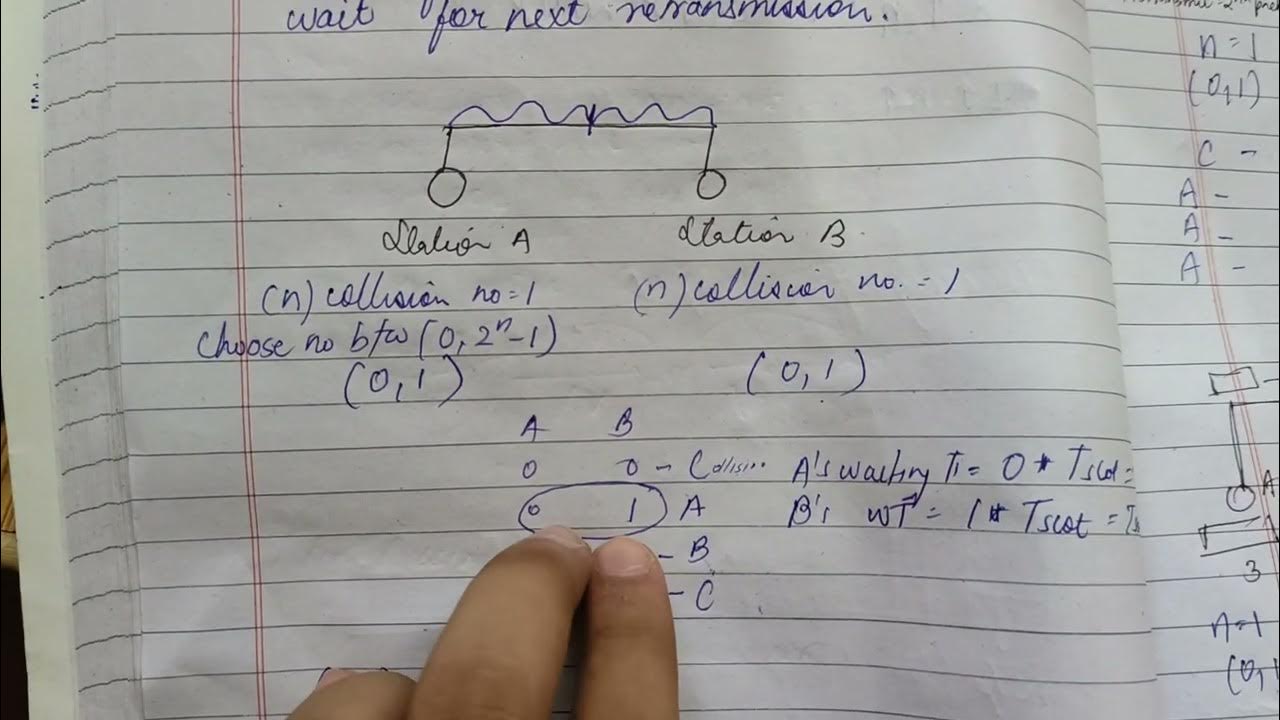 wait for next retransmission.
Station A
Station B
(n) collision no = 1
(n) collision no. = 1
choose no b/w (0, 2ⁿ-1)
(0, 1)
(0, 1)
A B
0 0 - Collision
A's waiting T = 0 * Tslot =
0 1 A
B's WT = 1 * Tslot =
- B
- C
n = 1
(0,1)
C -
A -
A -
A -
A
3
n=1
(0,1